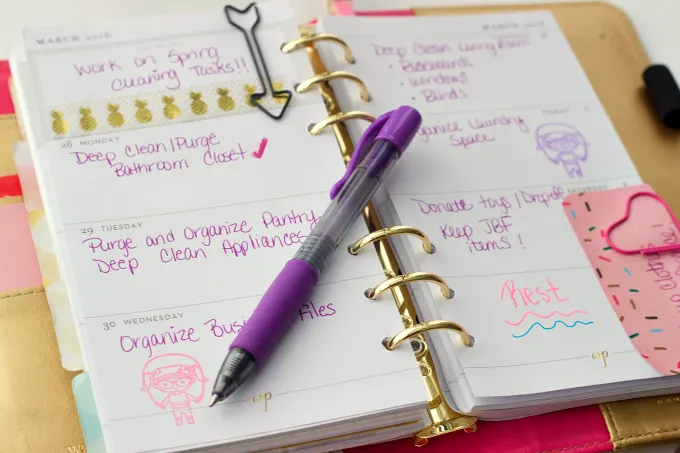 MARCH 2016
Work on Spring
Cleaning Tasks!!
28 MONDAY
Deep Clean/Purge
Bathroom Closet
29 TUESDAY
Purge and Organize Pantry
Deep Clean Appliances
30 WEDNESDAY
Organize Files
wp
MARCH 2016
Deep Clean Living Room
• Baseboards
• Windows
• Blinds
FRIDAY
Laundry
Space
SATURDAY
Donate toys/
Keep JBF
items!
Rest
wp